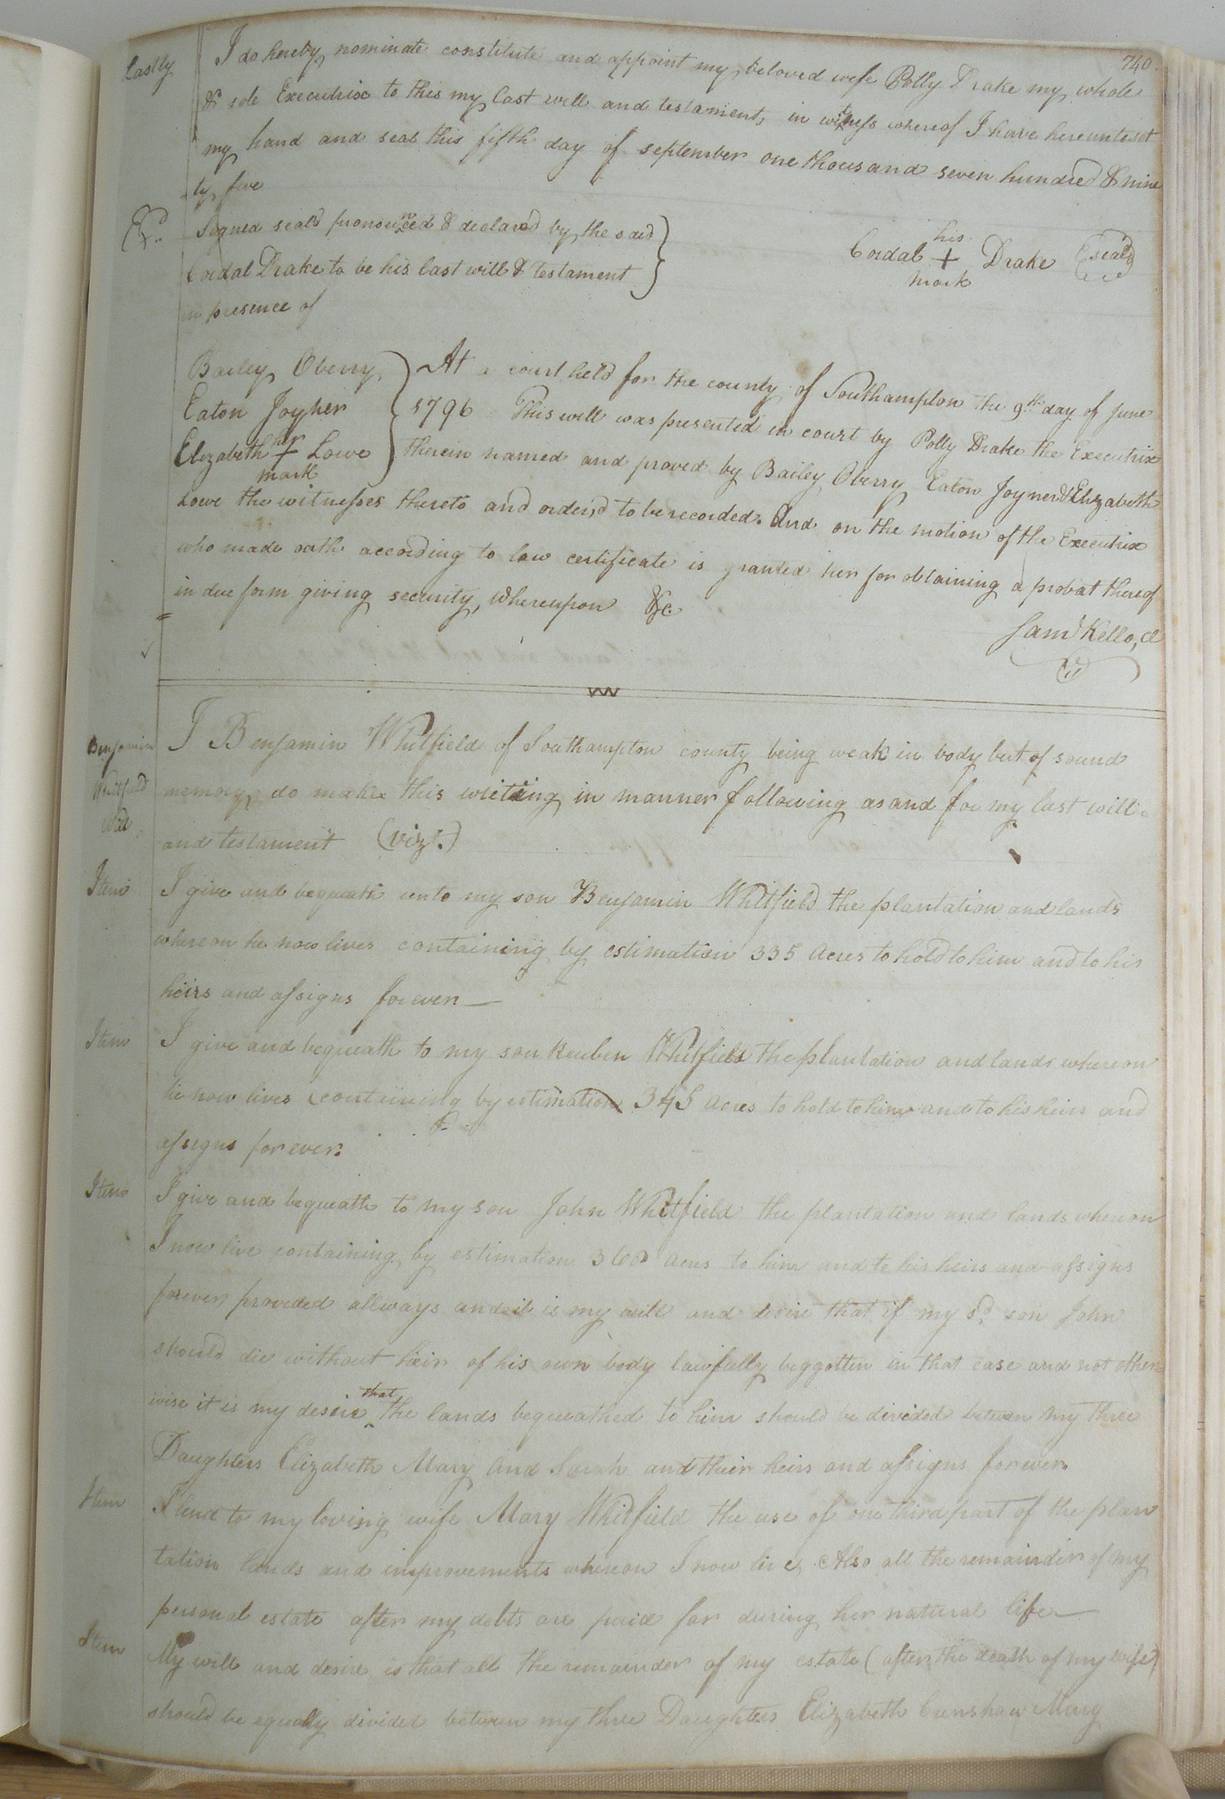 740.
Lastly I do hereby nominate constitute and appoint my beloved wife Polly Drake my whole
& sole Executrix to this my last will and testament, in witness whereof I have hereunto set
my hand and seal this fifth day of september one thousand seven hundred & nine
ty five
Signed seald pronounced & declared by the said
Cordal Drake to be his last will & testament
in presence of
his
Cordal + Drake (seal)
mark
Bailey Oberry
Eaton Joyner
her
Elizabeth + Lowe
mark
At a court held for the county of Southampton the 9th day of June
1796 This will was presented in court by Polly Drake the Executrix
therein named and proved by Bailey Oberry Eaton Joyner & Elizabeth
Lowe the witnesses thereto and orderd to be recorded. And on the motion of the Executrix
who made oath according to law certificate is granted her for obtaining a probat thereof
in due form giving security, whereupon &c
Saml Kello, Cl
Benjamin
Whitfield
Will
I Benjamin Whitfield of Southampton county being weak in body but of sound
memory do make this writing in manner following as and for my last will
and testament (vizt.)
Item I give and bequeath unto my son Benjamin Whitfield the plantation and lands
whereon he now lives containing by estimation 335 acres to hold to him and to his
heirs and assigns forever
Item I give and bequeath to my son Reuben Whitfield the plantation and lands whereon
he now lives containing by estimation 345 acres to hold to him and to his heirs and
assigns forever.
Item I give and bequeath to my son John Whitfield the plantation and lands whereon
I now live containing by estimation 360 acres to him and to his heirs and assigns
forever provided allways and it is my will and desire that if my sd. son John
should die without heir of his own body lawfully beggotten in that case and not other
wise it is my desire that the lands bequeathed to him should be divided between my three
Daughters Elizabeth Mary and Sarah and their heirs and assigns forever
Item I lend to my loving wife Mary Whitfield the use of one third part of the plan
tation lands and improvements whereon I now live, Also all the remainder of my
personal estate after my debts are paid for during her natural life
Item My will and desire is that all the remainder of my estate (after the death of my wife)
should be equally divided between my three Daughters Elizabeth Crenshaw Mary